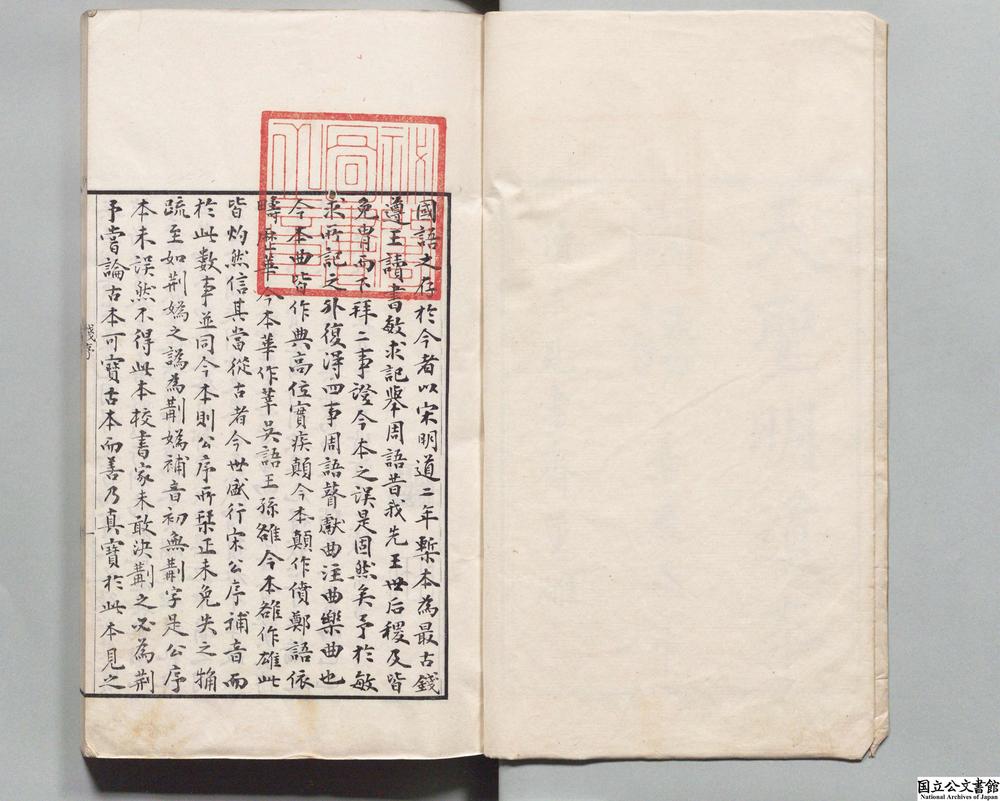 國語之存於今者以宋明道二年槧本為最古錢
遵王讀書敏求記舉周語昔我先王世后稷及皆
免冑而下拜二事證今本之誤是固然矣予於敏
求所記之外復得四事周語瞽獻曲注曲樂曲也
今本曲皆作典高位寔疾顛今本顛作僨鄭語依
疇歷華今本華作莘吳語王孫雒今本雒作雄此
皆灼然信其當從古者今世盛行宋公序補音而
於此數事並同今本則公序所栞正未免失之觕
疏至如荆嬀之譌為葋嬀補音初無葋字是公序
本未誤然不得此本校書家未敢決葋之必為荆
予嘗論古本可寶古本而善乃真寶於此本見之
錢序
一
国立公文書館
National Archives of Japan